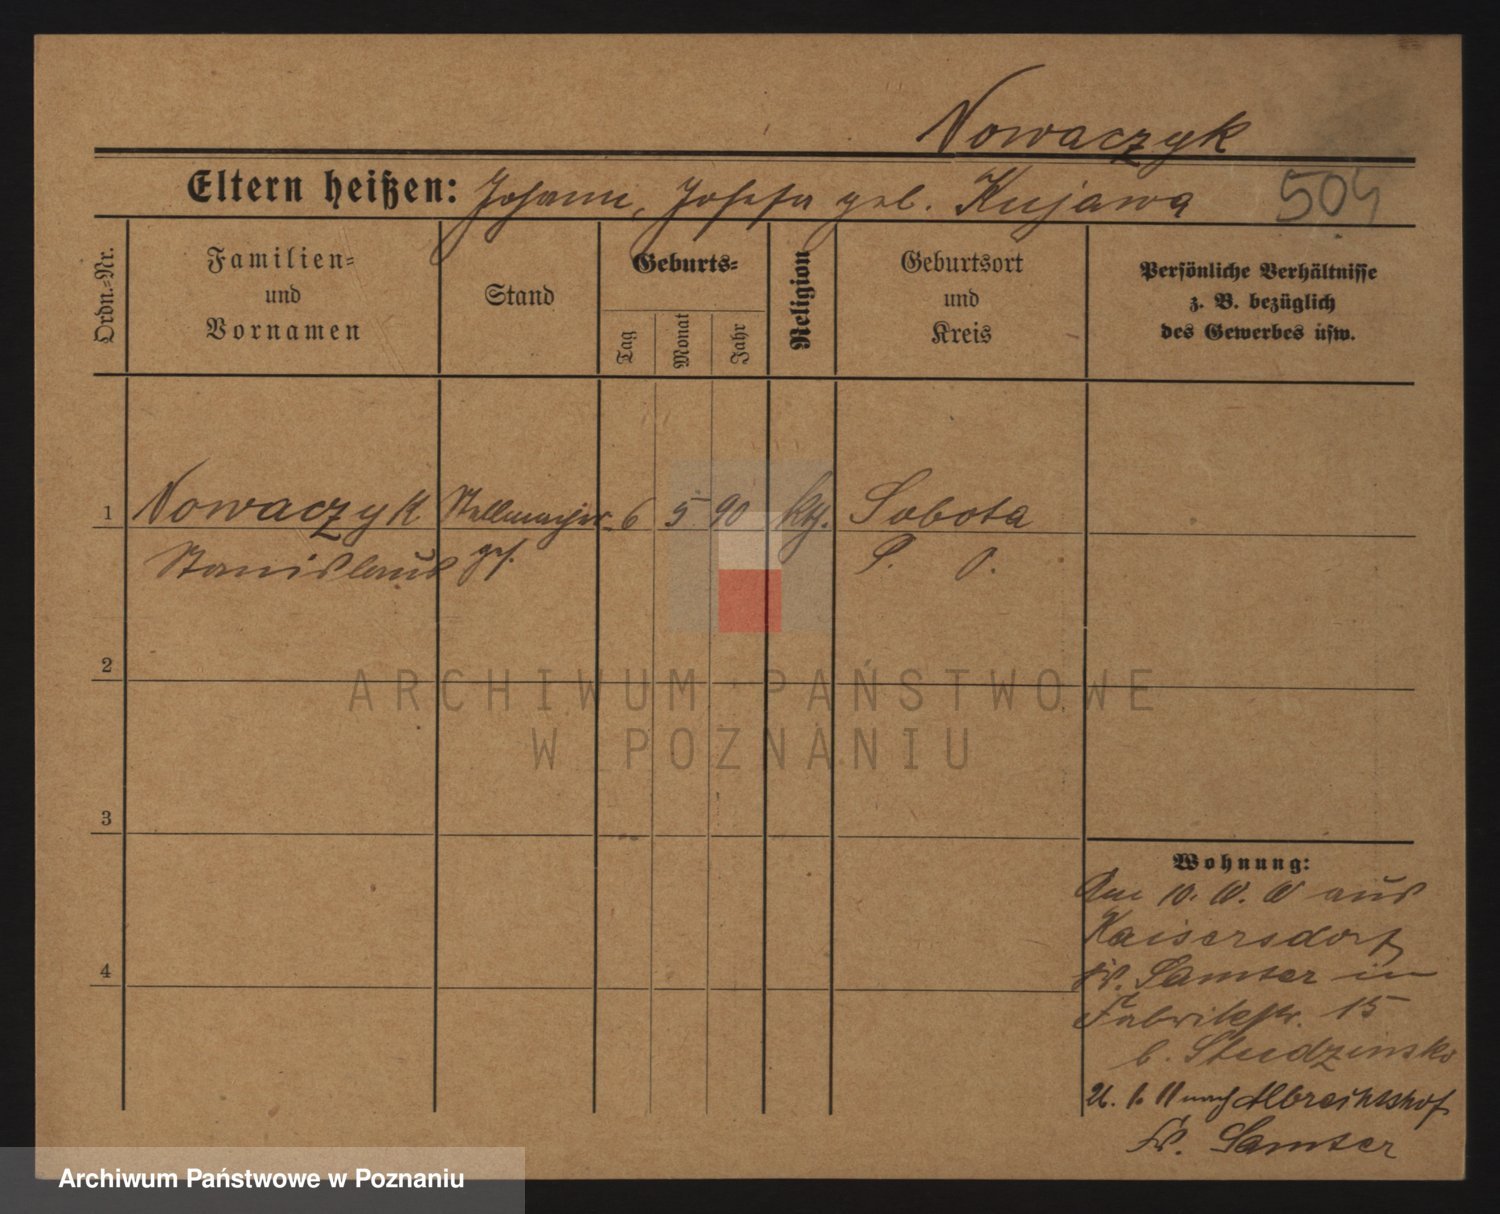 Nowaczyk
Eltern heißen: Johann, Josefa geb. Kujawa
504
Ordn.-Nr.
Familien-
und
Vornamen
Stand
Geburts-
Tag
Monat
Jahr
Religion
Geburtsort
und
Kreis
Persönliche Verhältnisse
z. B. bezüglich
des Gewerbes usw.
1 Nowaczyk Stellmacher 6 5 90 kth. Sobota
Stanislaus ges. P. O.
2
ARCHIWUM PAŃSTWOWE
W POZNANIU
3
Wohnung:
Am 10. 10. 10 aus
Kaisersdorf
Kr. Samter in
4
Fabrikstr. 15
b. Studzinsko
26. 1. 11 nach Albrechtshof
Kr. Samter
Archiwum Państwowe w Poznaniu